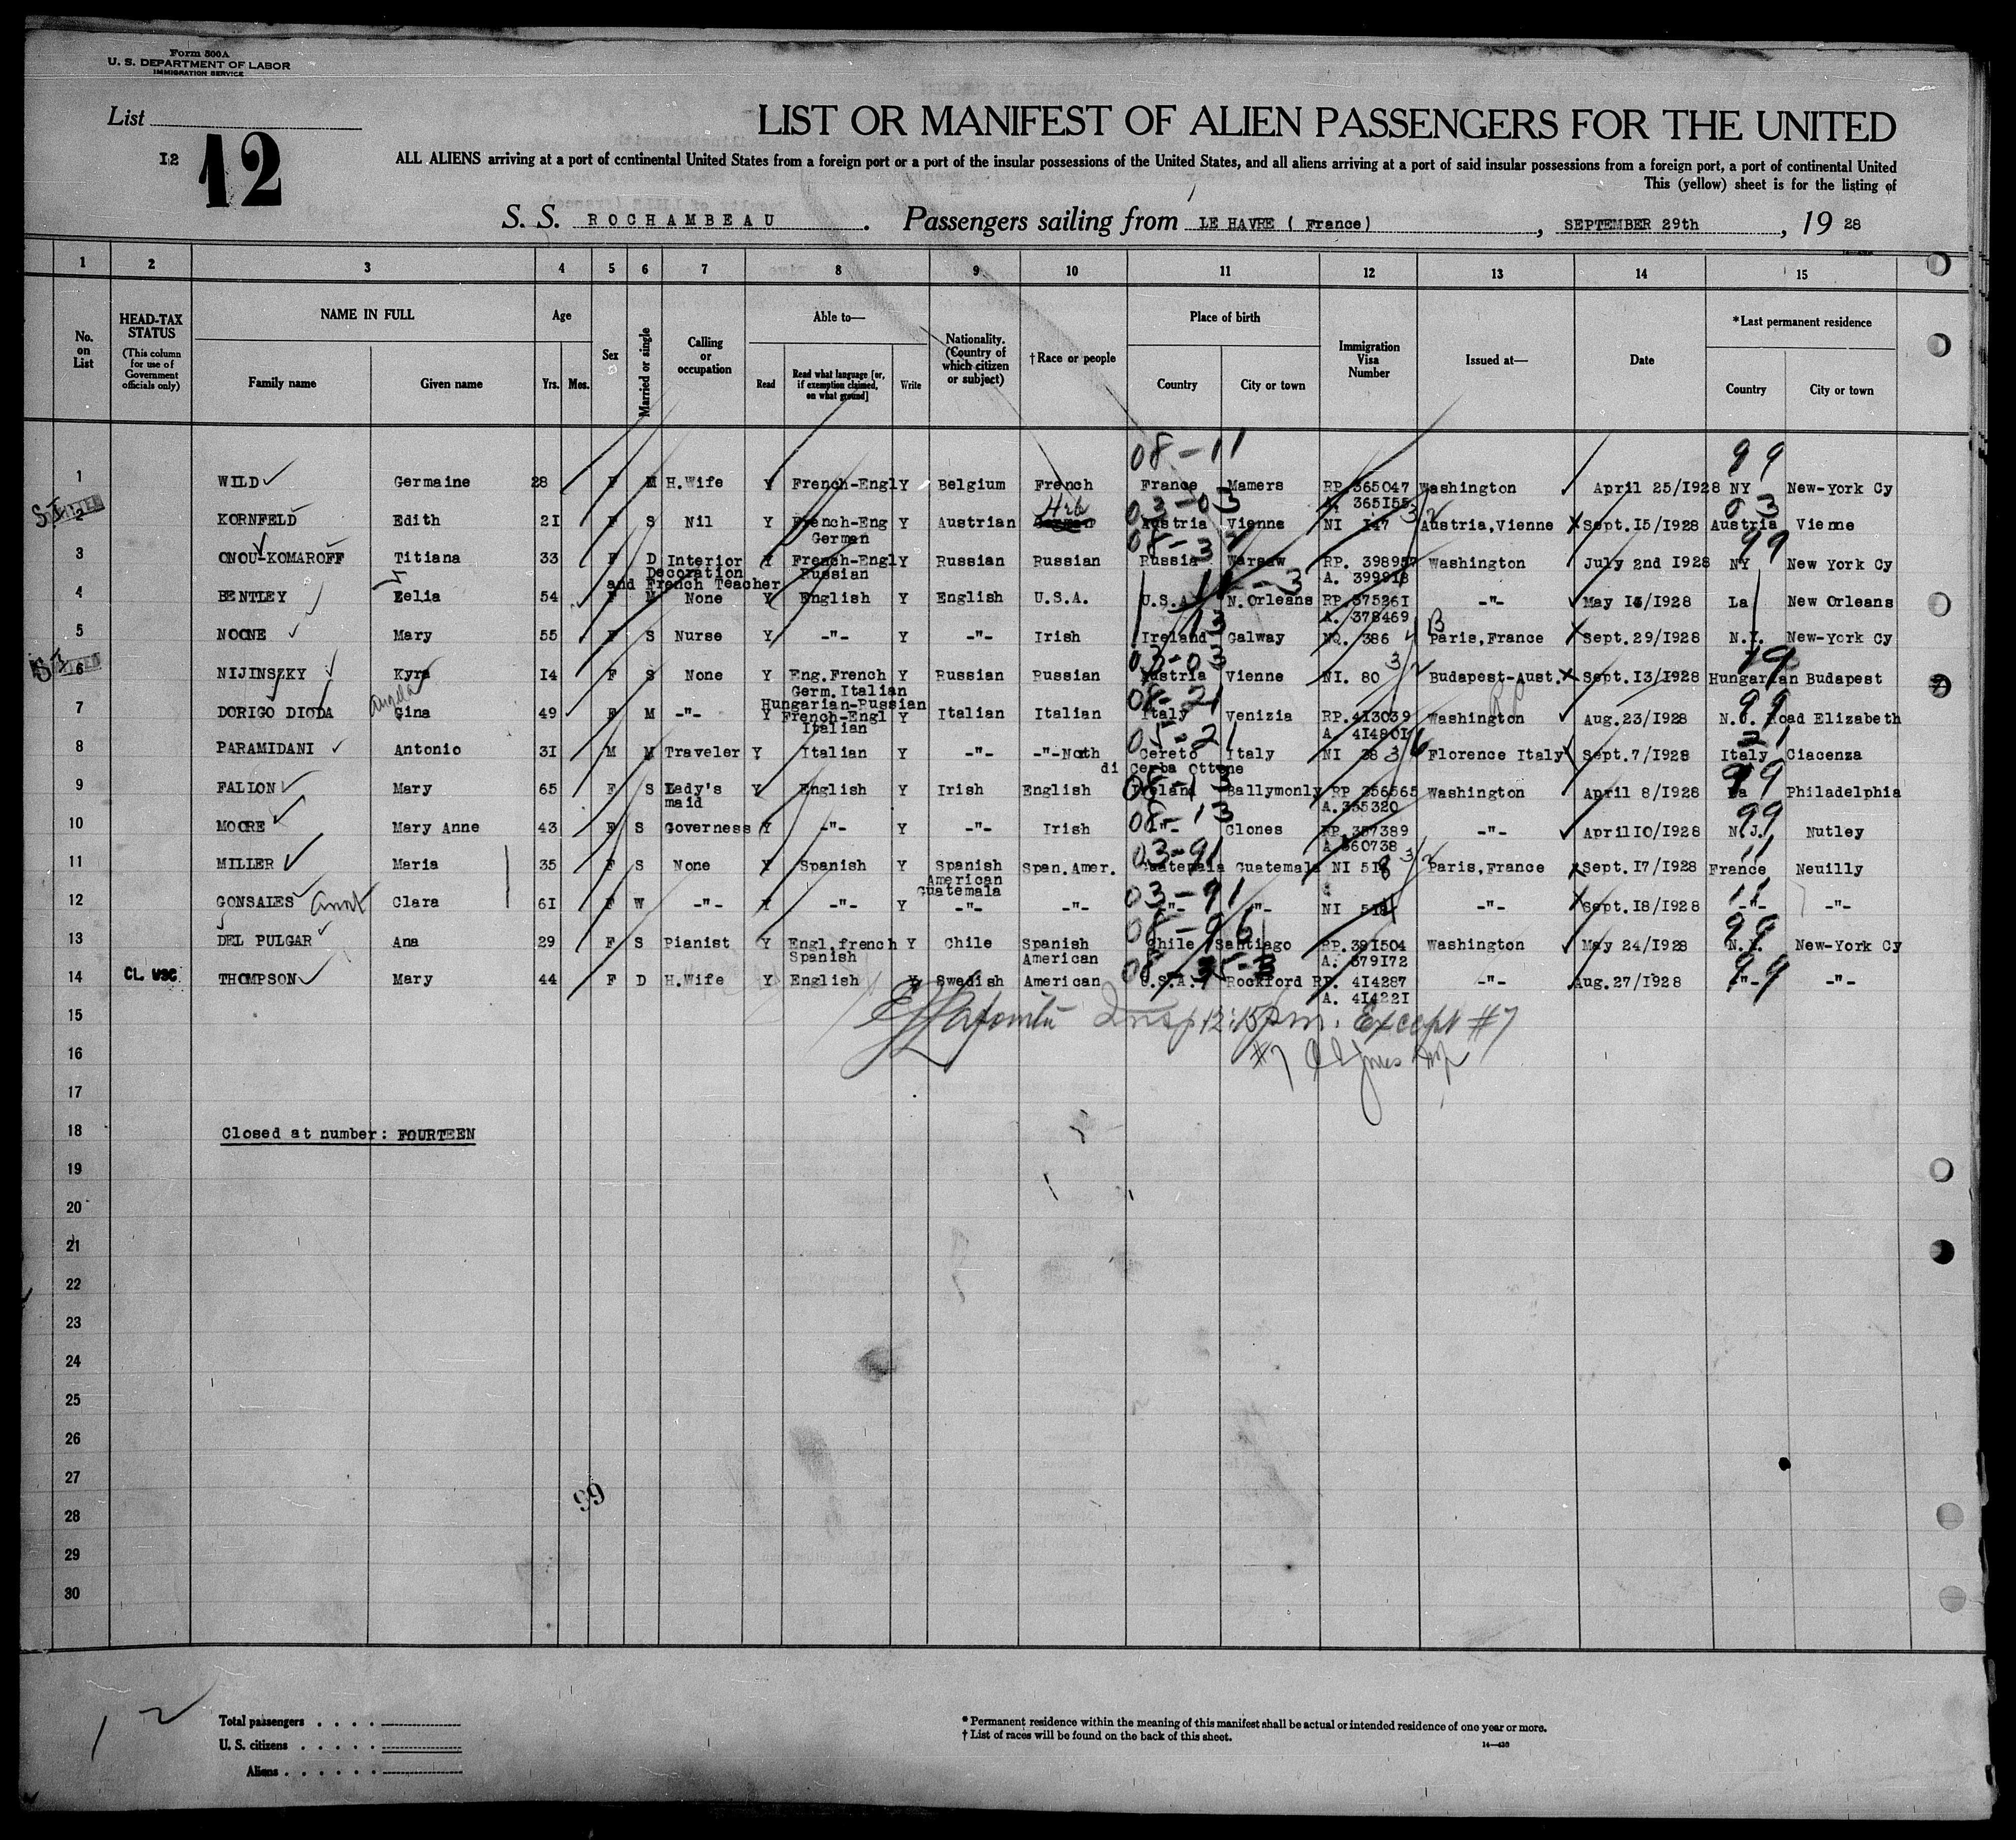 Form 500A
U. S. DEPARTMENT OF LABOR
IMMIGRATION SERVICE
List
12 12
LIST OR MANIFEST OF ALIEN PASSENGERS FOR THE UNITED
ALL ALIENS arriving at a port of continental United States from a foreign port or a port of the insular possessions of the United States, and all aliens arriving at a port of said insular possessions from a foreign port, a port of continental United
This (yellow) sheet is for the listing of
S. S. ROCHAMBEAU. Passengers sailing from LE HAVRE ( France), SEPTEMBER 29th, 19 28
1 2 3 4 5 6 7 8 9 10 11 12 13 14 15
No. on List
HEAD-TAX STATUS (This column for use of Government officials only)
NAME IN FULL
Family name Given name
Age
Yrs. Mos.
Sex
Married or single
Calling or occupation
Able to—
Read
Read what language [or, if exemption claimed, on what ground]
Write
Nationality. (Country of which citizen or subject)
†Race or people
Place of birth
Country City or town
Immigration Visa Number
Issued at—
Date
*Last permanent residence
Country City or town
08-11 99
1 WILD Germaine 28 F M H.Wife Y French-Engl Y Belgium French France Mamers RP 365047 Washington April 25/1928 NY New-York Cy
A. 365155
03-03 03
SI 2 KORNFELD Edith 21 F S Nil Y French-Eng Y Austrian Heb Austria Vienne NI 147 Austria,Vienne Sept.15/1928 Austria Vienne
German
99
3 ONOU-KOMAROFF Titiana 33 F D Interior Y French-Engl Y Russian Russian Russia Warsaw RP. 398957 Washington July 2nd 1928 NY New York Cy
Decoration Russian A. 399918
and French Teacher
4 BENTLEY Zelia 54 F M None Y English Y English U.S.A. U.S.A N.Orleans RP.375261 -"- May 15/1928 La New Orleans
A. 378469
13
5 NOONE Mary 55 F S Nurse Y -"- Y -"- Irish Ireland Galway NQ. 386 Paris,France Sept.29/1928 N.Y. New-York Cy
03-03
SI 6 NIJINSKY Kyra 14 F S None Y Eng.French Y Russian Russian Austria Vienne NI. 80 Budapest-Aust. Sept.13/1928 Hungarian Budapest
Germ.Italian
Hungarian-Russian
08-21 99
7 DORIGO DIODA Angela Gina 49 F M -"- Y French-Engl Y Italian Italian Italy Venizia RP.413039 Washington Aug.23/1928 Road Elizabeth
Italian A. 414801
05-21 21
8 PARAMIDANI Antonio 31 M M Traveler Y Italian Y -"- -"-North Cereto Italy NI 38 Florence Italy Sept.7/1928 Italy Ciacenza
di Cerba Ottone
08-13 99
9 FALLON Mary 65 F S Lady's Y English Y Irish English Ballymonly RP 356565 Washington April 8/1928 Philadelphia
maid A.365320
08-13 99
10 MOORE Mary Anne 43 F S Governess Y -"- Y -"- Irish -"- Clones RP.357389 -"- April10/1928 N.J. Nutley
A 360738
03-91 11
11 MILLER Maria 35 F S None Y Spanish Y Spanish Span.Amer. Guatemala Guatemala NI Paris,France Sept.17/1928 France Neuilly
American
Guatemala
03-91 11
12 GONSALES Clara 61 F W -"- Y -"- Y -"- -"- -"- -"- NI -"- Sept.18/1928 -"- -"-
08-96 99
13 DEL PULGAR Ana 29 F S Pianist Y Engl.french Y Chile Spanish Chile Santiago RP.391504 Washington May 24/1928 N.Y. New-York Cy
Spanish American A. 379172
99
14 CL. USC THOMPSON Mary 44 F D H.Wife Y English Y Swedish American U.S.A. Rockford RP. 414287 -"- Aug.27/1928 -"- -"-
A. 414221
15
Insp 12:15 pm. Except #7
16
#7
17
18 Closed at number: FOURTEEN
19
20
21
22
23
24
25
26
27
99
28
29
30
12
Total passengers
U. S. citizens
Aliens
* Permanent residence within the meaning of this manifest shall be actual or intended residence of one year or more.
† List of races will be found on the back of this sheet.
14—430